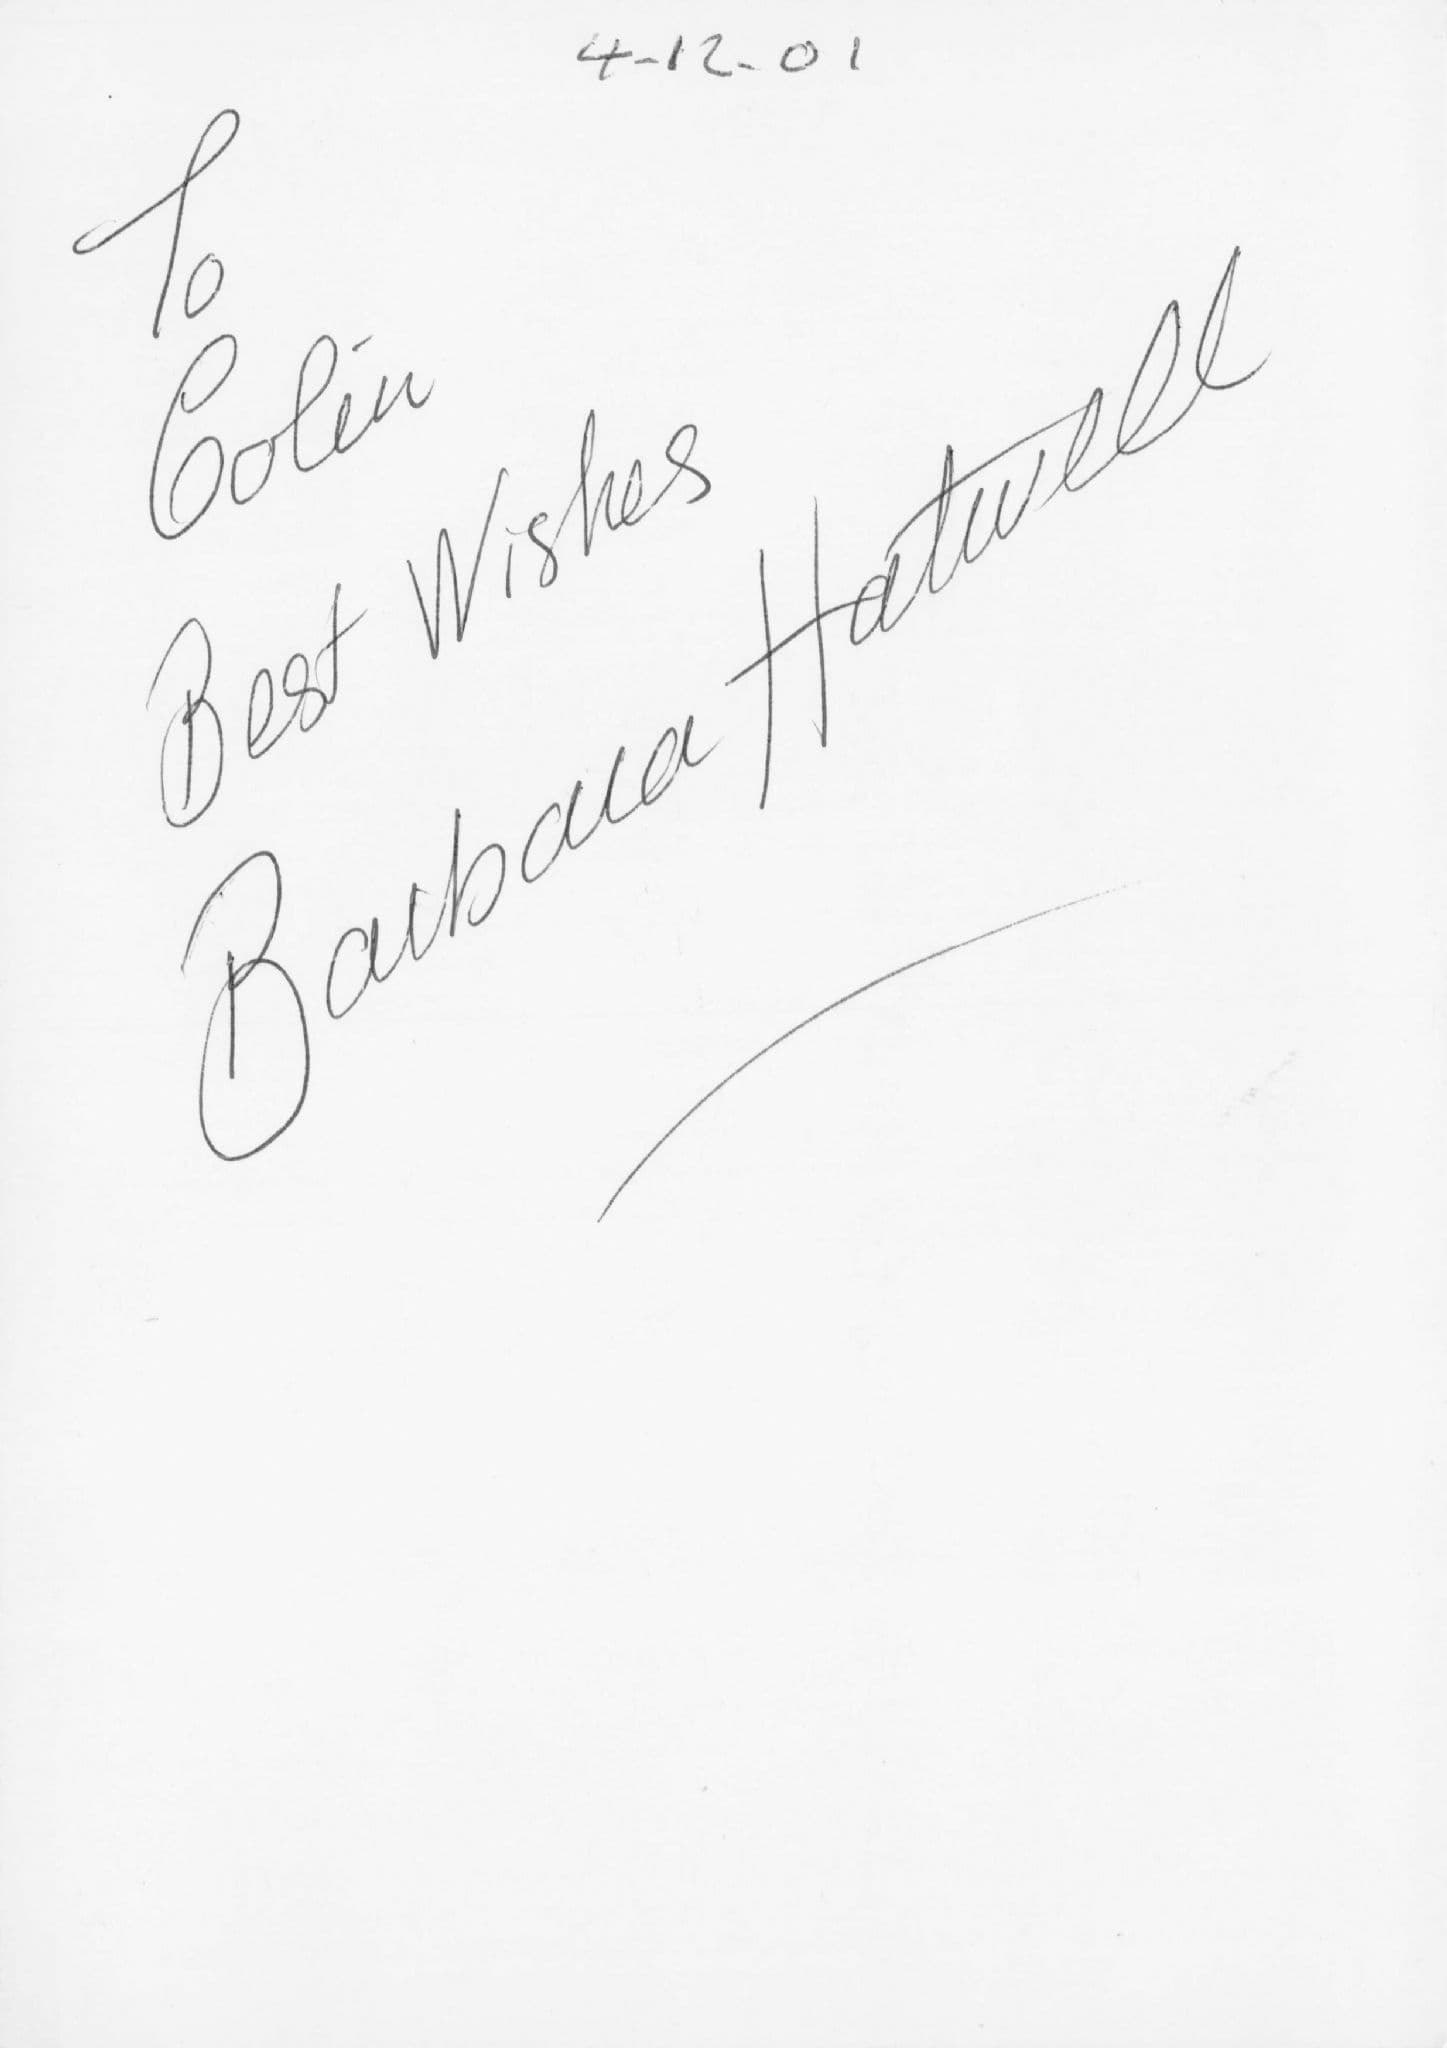 4-12-01
To
Colin
Best Wishes
Barbara Hatwell